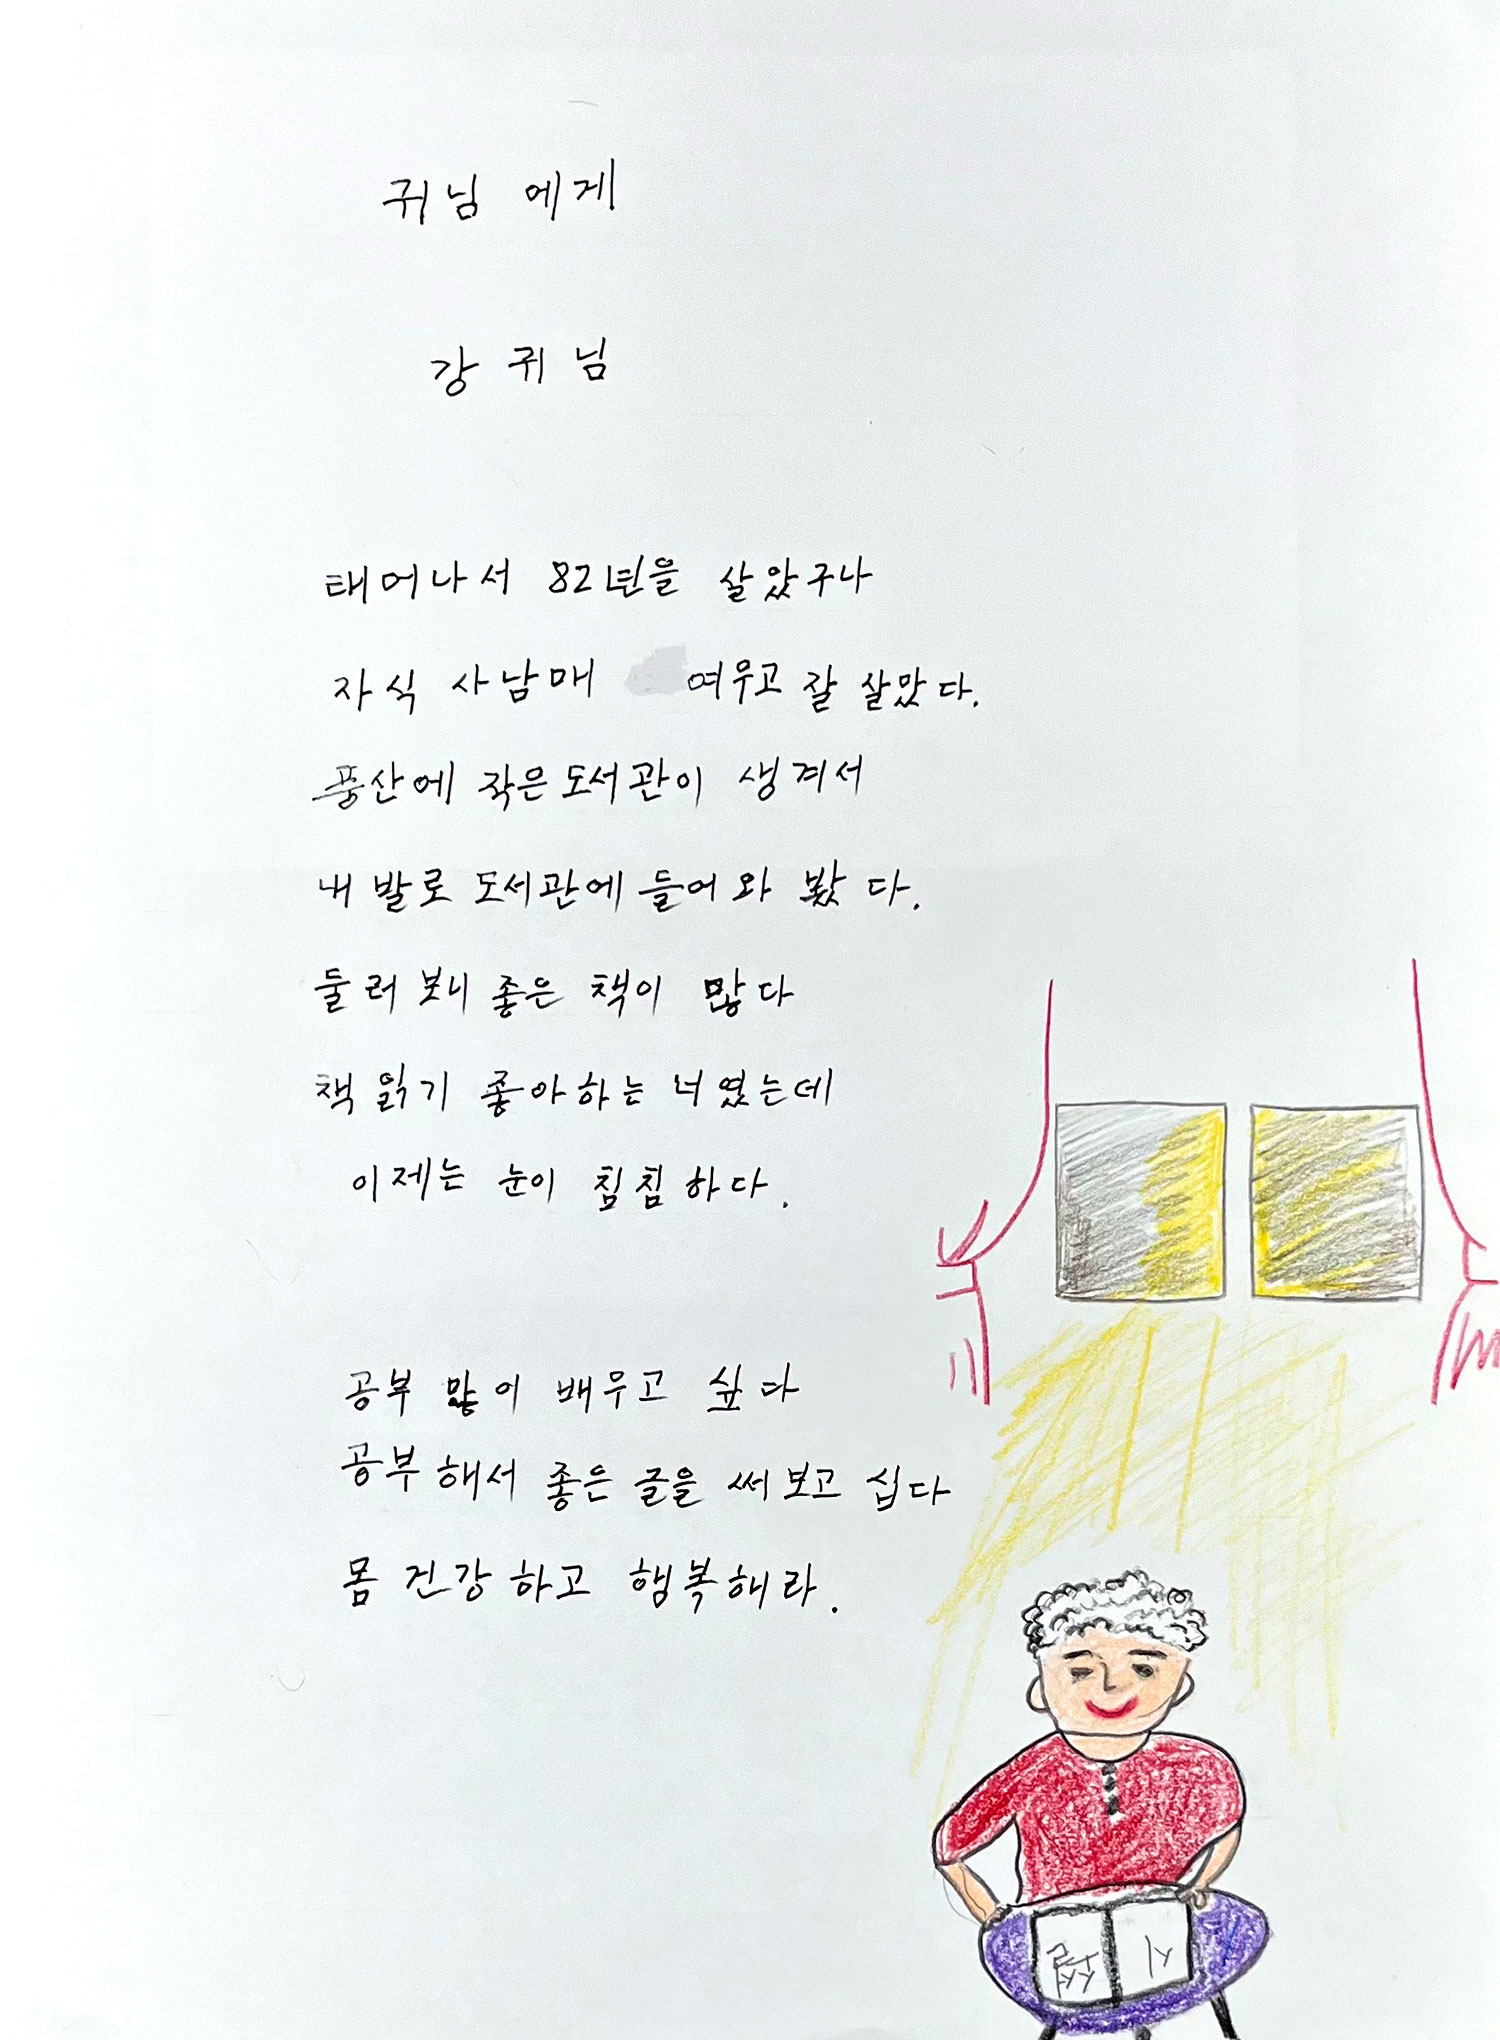 귀님 에게
강 귀 님
태어나서 82년을 살았구나
자식 사남매 여우고 잘 살았다.
풍산에 작은 도서관이 생겨서
내 발로 도서관에 들어 와 봤다.
둘러 보니 좋은 책이 많다
책 읽기 좋아하는 너였는데
이제는 눈이 침침하다.
공부 많이 배우고 싶다
공부해서 좋은 글을 써보고 십다
몸 건강하고 행복해라.